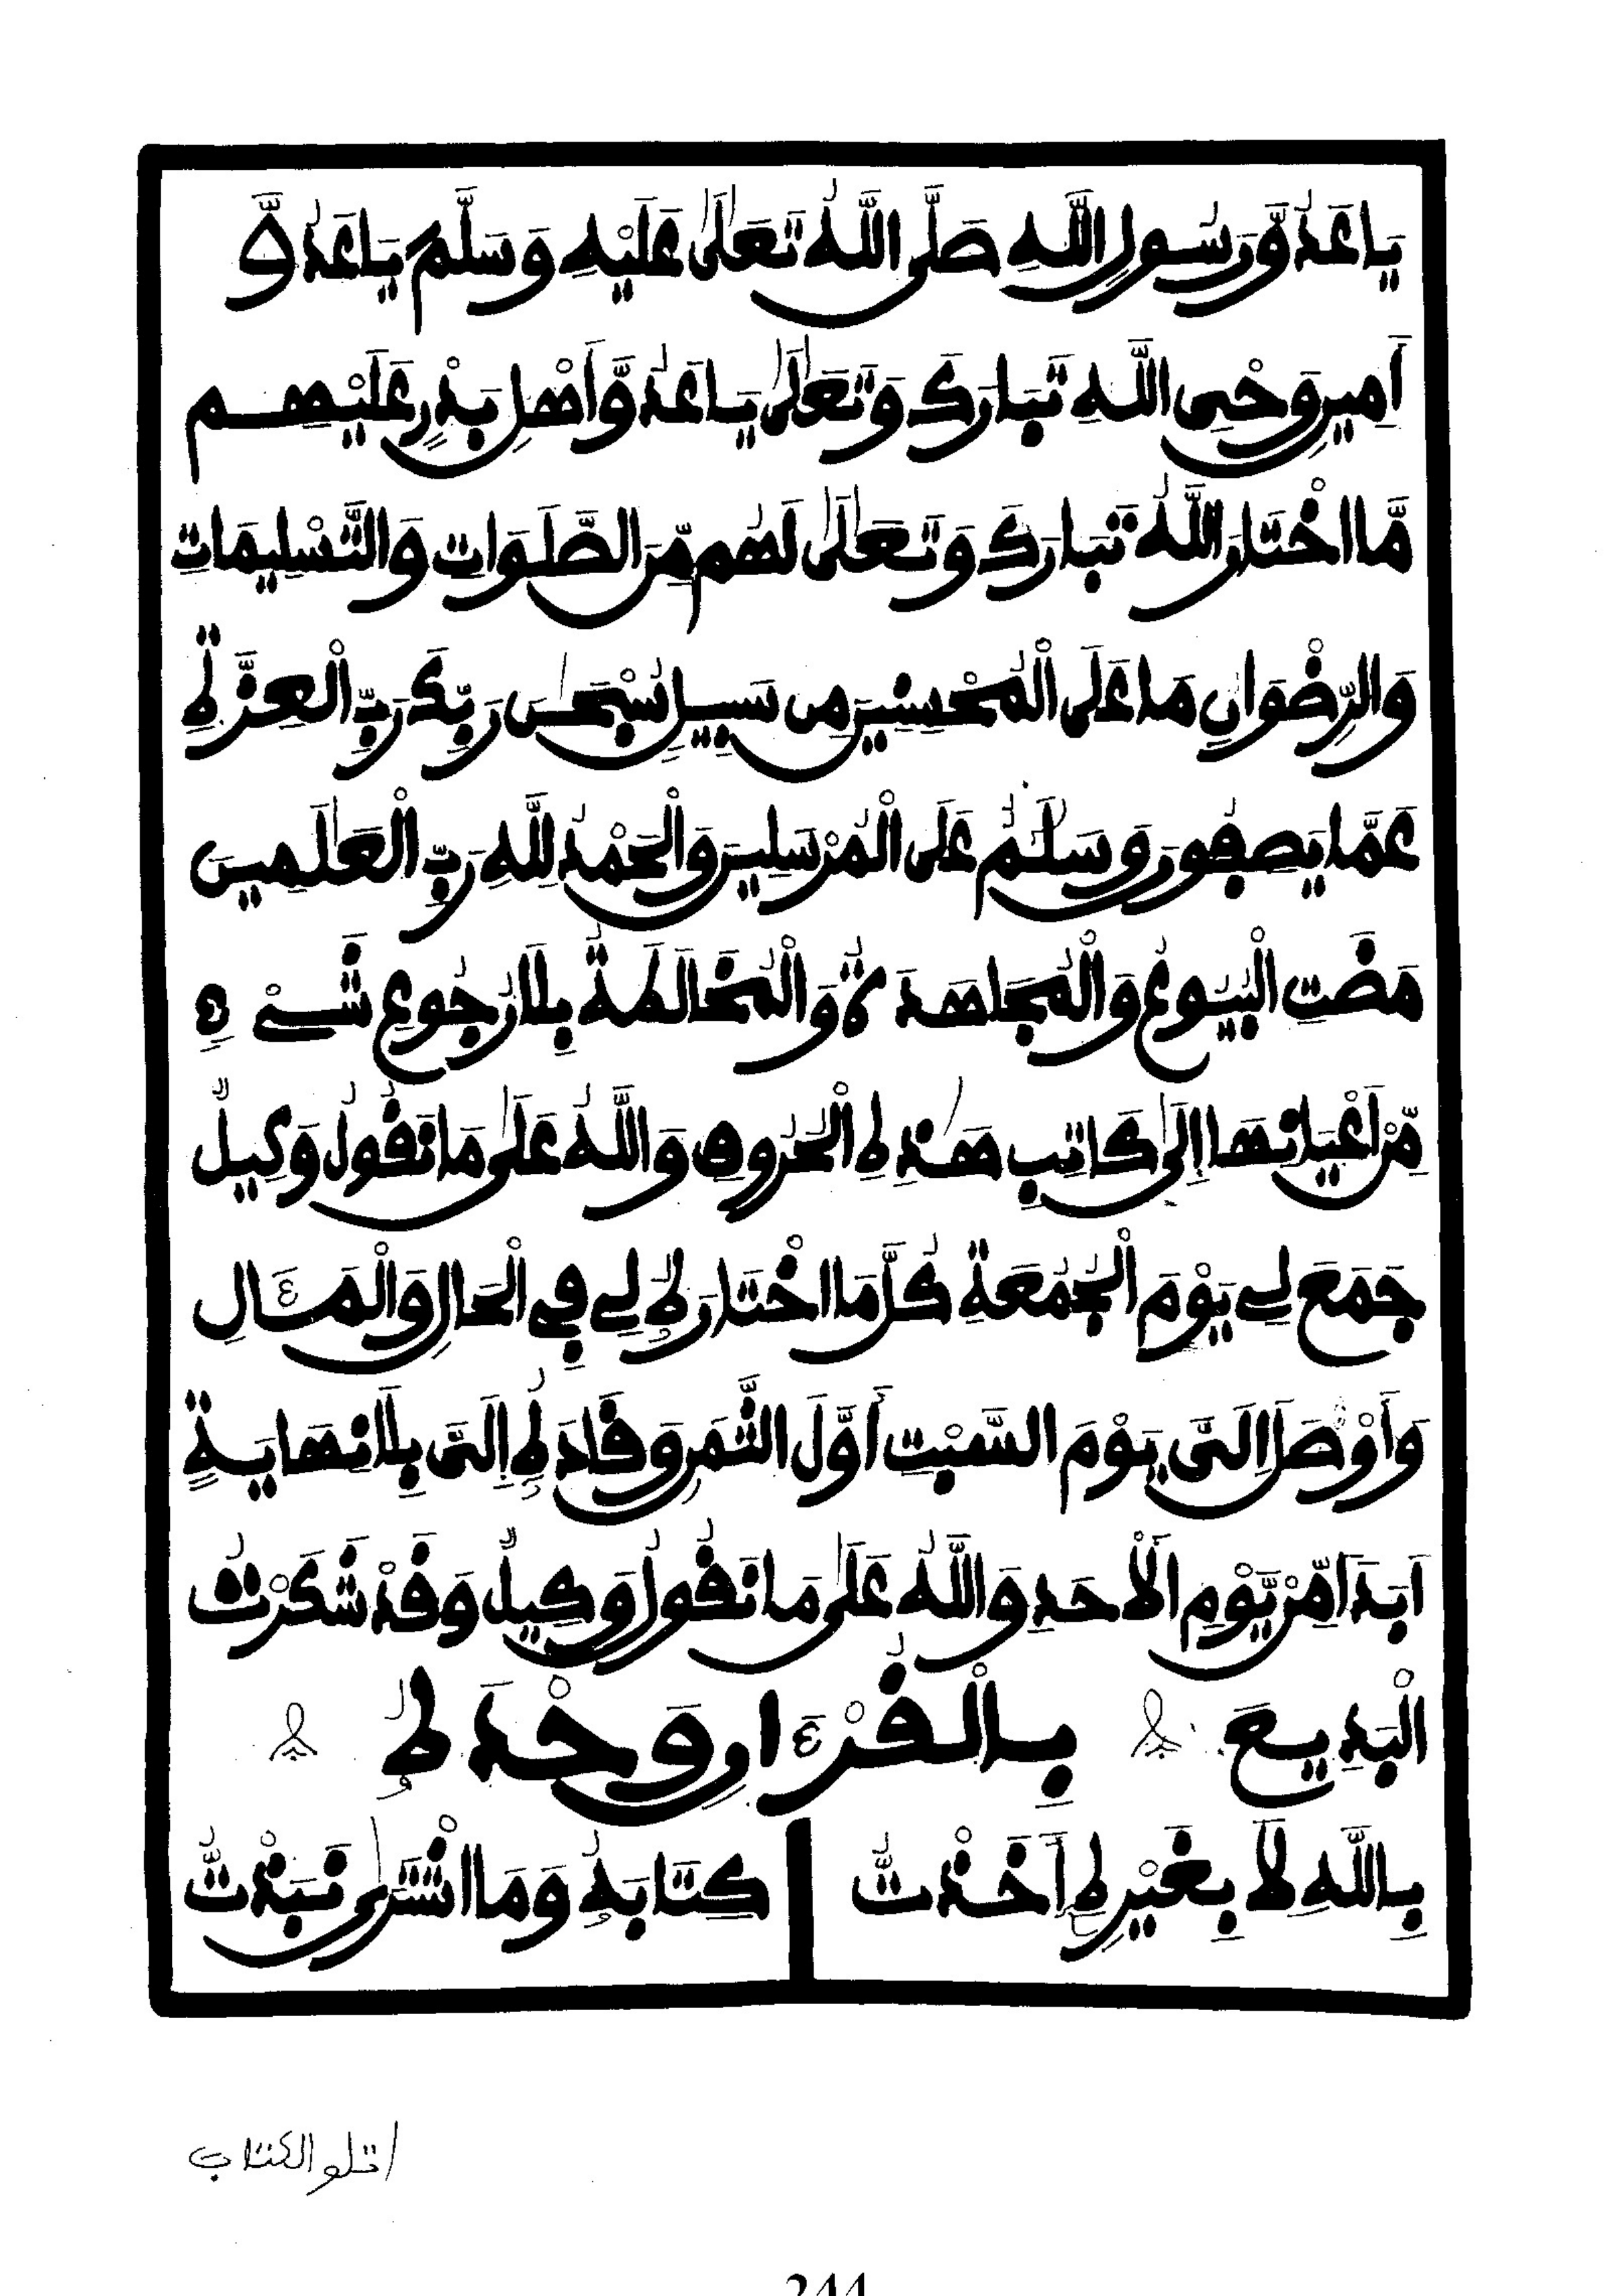 يَا عَدُوَّ رَسُولِ اللَّهِ صَلَّى اللَّهُ تَعَالَىٰ عَلَيْهِ وَسَلَّمَ يَا عَدُوَّ
أَمِيرِ وَحْيِ اللَّهِ تَبَارَكَ وَتَعَالَىٰ يَا عَدُوَّ أَهْلِ بَدْرٍ عَلَيْهِم
مَّا اخْتَارَ اللَّهُ تَبَارَكَ وَتَعَالَىٰ لَهُم مِّنَ الصَّلَوَاتِ وَالتَّسْلِيمَاتِ
وَالرِّضْوَانِ مَا عَلَى الْمُحْسِنِينَ مِن سَبِيلٍ سُبْحَٰنَ رَبِّكَ رَبِّ الْعِزَّةِ
عَمَّا يَصِفُونَ وَسَلَٰمٌ عَلَى الْمُرْسَلِينَ وَالْحَمْدُ لِلَّهِ رَبِّ الْعَٰلَمِينَ
مَضَتِ الْبُيُوعُ وَالْمُجَاهَدَةُ وَالْمُخَالَطَةُ بِلَا رُجُوعِ شَيْءٍ
مِّنْ أَعْيَانِهَا إِلَىٰ كَاتِبِ هَٰذِهِ الْحُرُوفِ وَاللَّهُ عَلَىٰ مَا نَقُولُ وَكِيلٌ
جَمَعَ لِي يَوْمَ الْجُمُعَةِ كُلَّ مَا اخْتَارَهُ لِي فِي الْحَالِ وَالْمَـَٔالِ
وَأَوْصَلَ إِلَيَّ يَوْمَ السَّبْتِ أَوَّلَ الثَّمَرِ وَقَادَهُ إِلَيَّ بِلَا نِهَايَةٍ
أَبَدًا مِّنْ يَّوْمِ الْأَحَدِ وَاللَّهُ عَلَىٰ مَا نَقُولُ وَكِيلٌ وَقَدْ شَكَرْتُ
الْبَدِيعَ بِالْقُرْءَانِ وَحْدَهُ
بِاللَّهِ لَا بِغَيْرِهِ أَخَذتُّ كِتَابَهُ وَمَا افْتُرَىٰ نَبَذتُّ
اتلو الكتاب
244